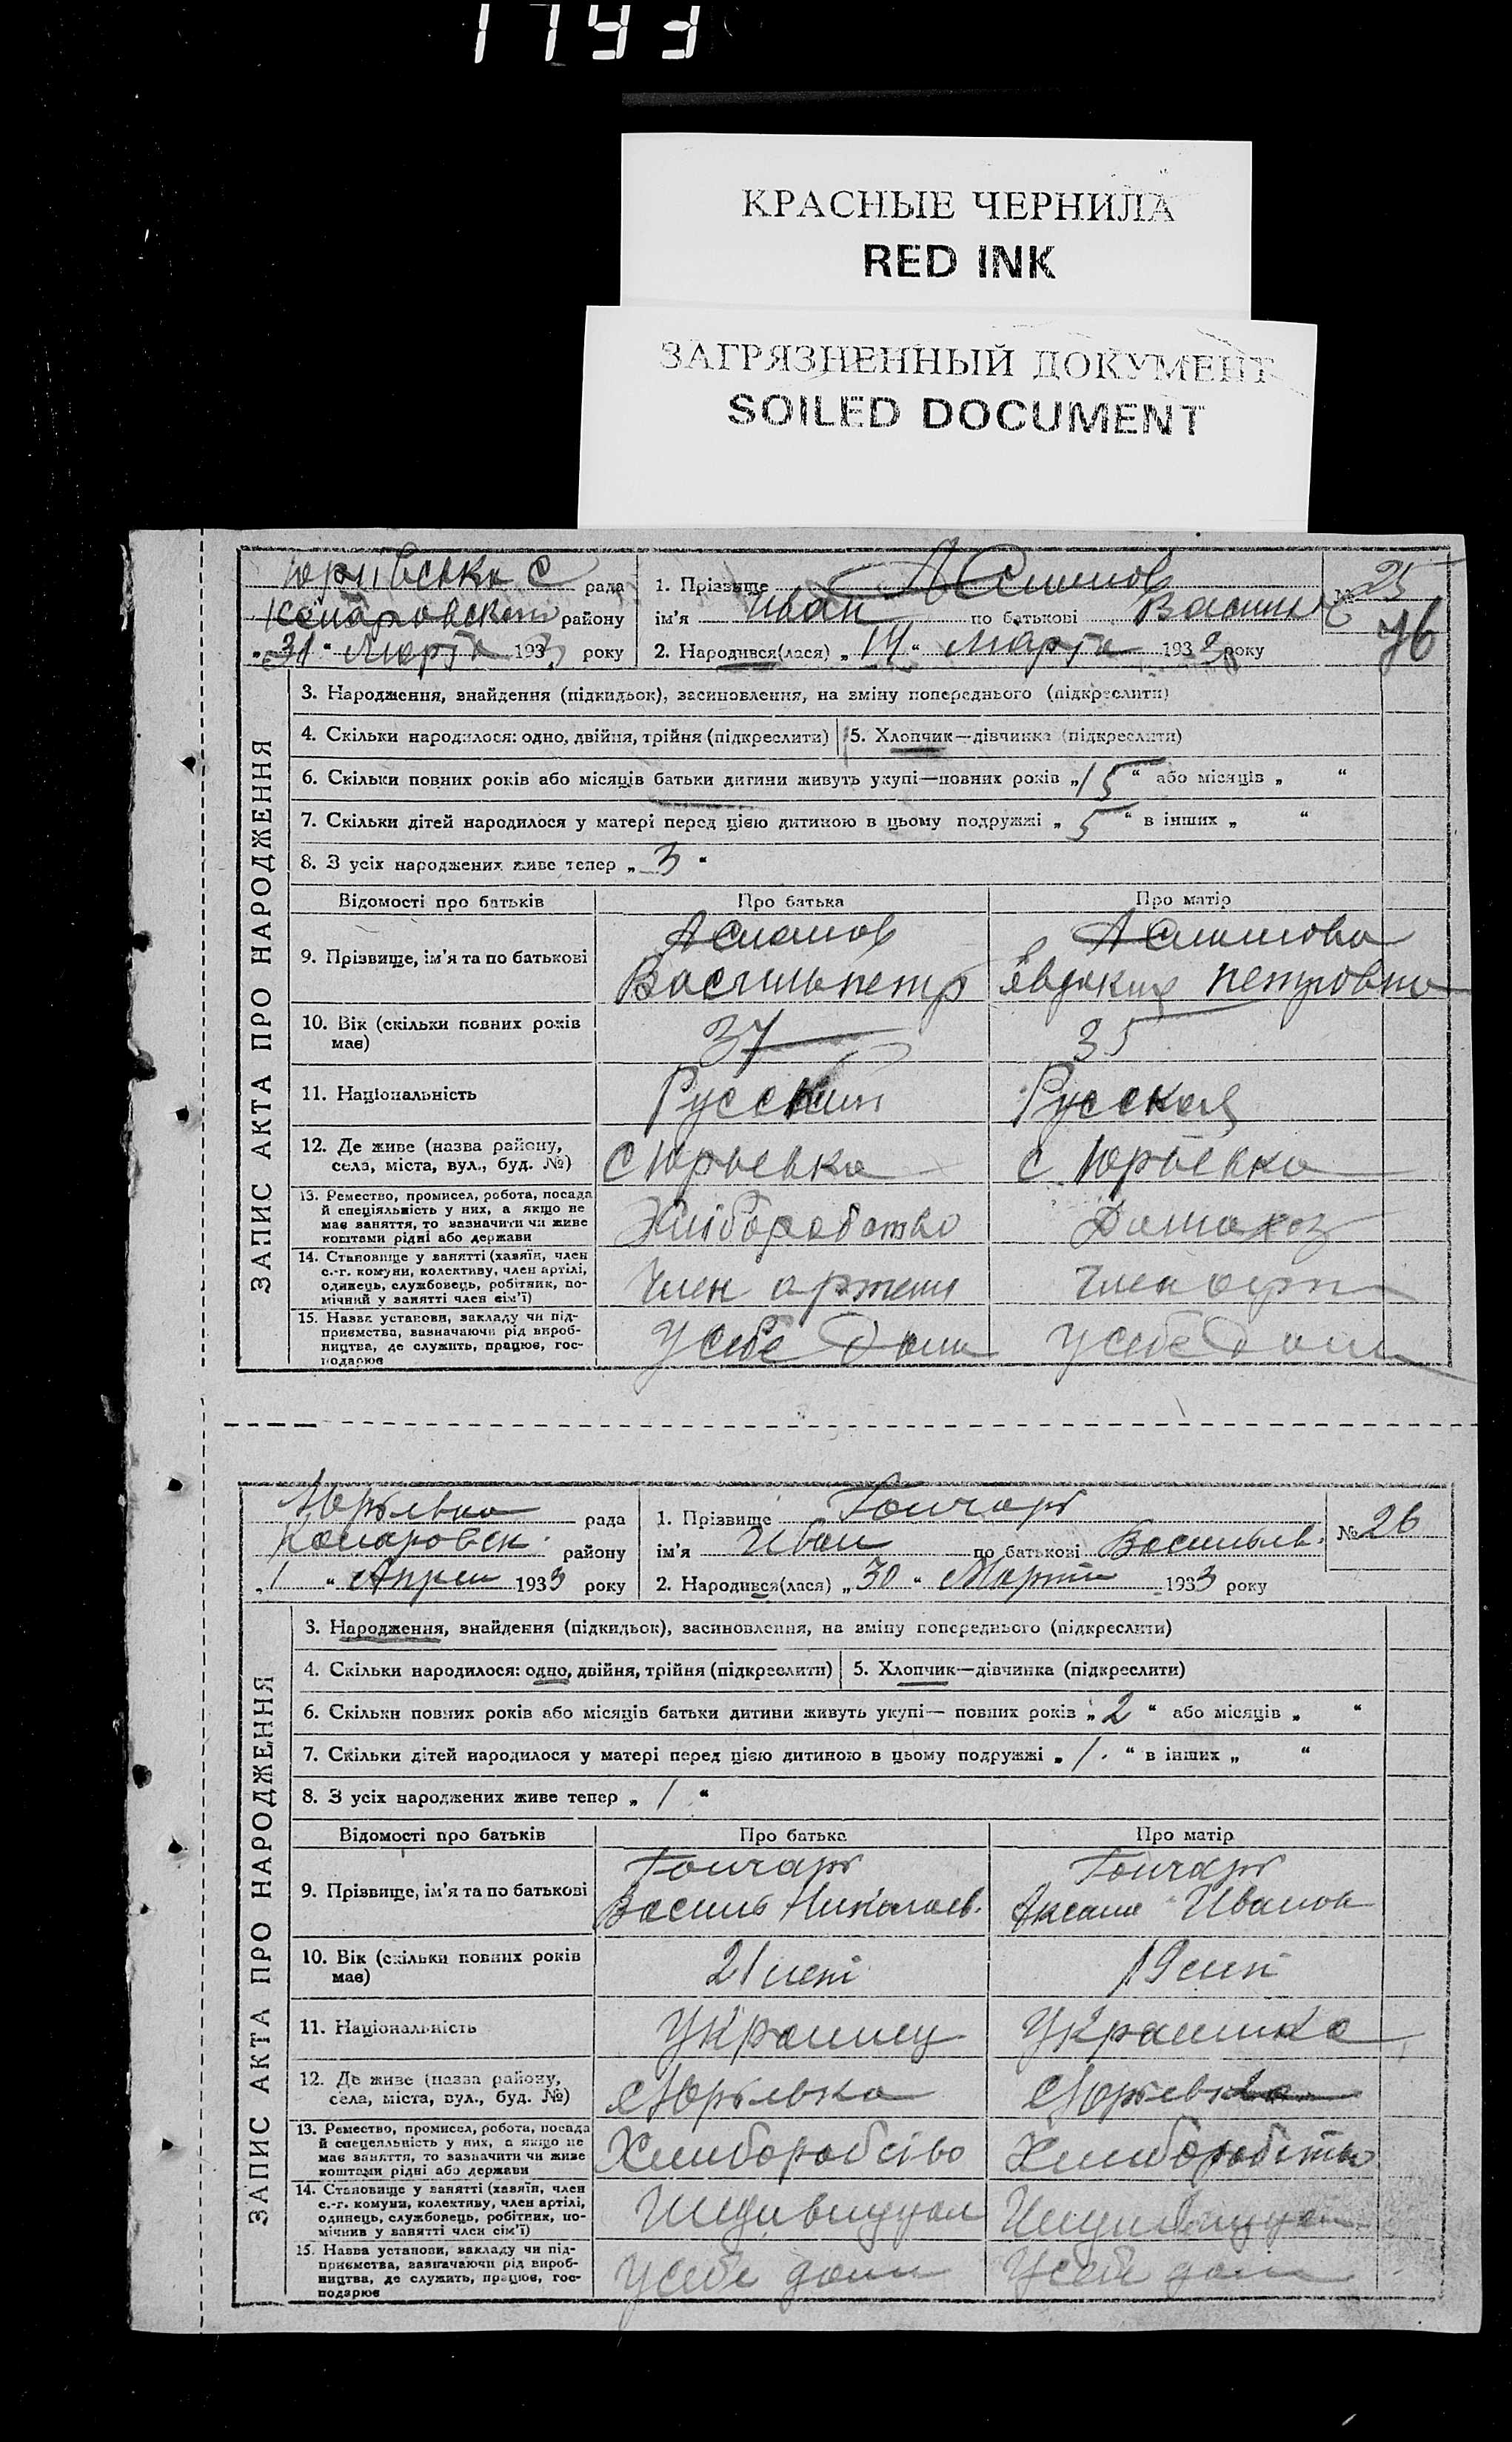 1793
КРАСНЫЕ ЧЕРНИЛА
RED INK
ЗАГРЯЗНЕННЫЙ ДОКУМЕНТ
SOILED DOCUMENT
Юриївська С рада
району
"31" Марта 1933 року
1. Прізвище
ім'я Иван по батькові Васил
2. Народився(лася) "14" марта 1933 року
№ 25
76
ЗАПИС АКТА ПРО НАРОДЖЕННЯ
3. Народження, знайдення (підкидьок), засиновлення, на зміну попереднього (підкреслити)
4. Скільки народилося: одно, двійня, трійня (підкреслити) 5. Хлопчик—дівчинка (підкреслити)
6. Скільки повних років або місяців батьки дитини живуть укупі—повних років "15" або місяців " "
7. Скільки дітей народилося у матері перед цією дитиною в цьому подружжі "5" в інших " "
8. З усіх народжених живе тепер "3"
Відомості про батьків Про батька Про матір
9. Прізвище, ім'я та по батькові
Василь петр Явдокия петровна
10. Вік (скільки повних років має) 37 35
11. Національність Русский Русская
12. Де живе (назва району, села, міста, вул., буд. №) с Юрьевка с. Юрьевка
13. Ремество, промисел, робота, посада й спеціяльність у них, а якщо не має заняття, то зазначити чи живе коштами рідні або держави Хліборобство Домахоз
14. Становище у занятті (хазяїн, член с.-г. комуни, колективу, член артілі, одинець, службовець, робітник, помічний у занятті член сім'ї) Член артели Член арт
15. Назва установи, закладу чи підприємства, зазначаючи рід виробництва, де служить, працює, господарює У себе дома У себе дома
Юрьевка рада
Комаровск. району
"1" Апрел 1933 року
1. Прізвище Гончарь
ім'я Иван по батькові Васильев.
2. Народився(лася) "30" Марта 1933 року
№ 26
ЗАПИС АКТА ПРО НАРОДЖЕННЯ
3. Народження, знайдення (підкидьок), засиновлення, на зміну попереднього (підкреслити)
4. Скільки народилося: одно, двійня, трійня (підкреслити) 5. Хлопчик—дівчинка (підкреслити)
6. Скільки повних років або місяців батьки дитини живуть укупі— повних років "2" або місяців " "
7. Скільки дітей народилося у матері перед цією дитиною в цьому подружжі "1." в інших " "
8. З усіх народжених живе тепер "1"
Відомості про батьків Про батька Про матір
9. Прізвище, ім'я та по батькові Гончарь Гончарь
Василь Николаев. Аксана Иванов
10. Вік (скільки повних років має) 21 лет 19 лет
11. Національність Украинец Украинка
12. Де живе (назва району, села, міста, вул., буд. №) с Юрьевка с Юрьевка
13. Ремество, промисел, робота, посада й спецеяльність у них, а якщо не має заняття, то зазначити чи живе коштами рідні або держави Хлиборобство Хлиборобство
14. Становище у занятті (хазяїн, член с.-г. комуни, колективу, член артілі, одинець, службовець, робітник, помічнив у занятті член сім'ї) Индивидуал Индивидуал
15. Назва установи, закладу чи підприємства, зазначаючи рід виробництва, де служить, працює, господарює У себе дома У себе дома